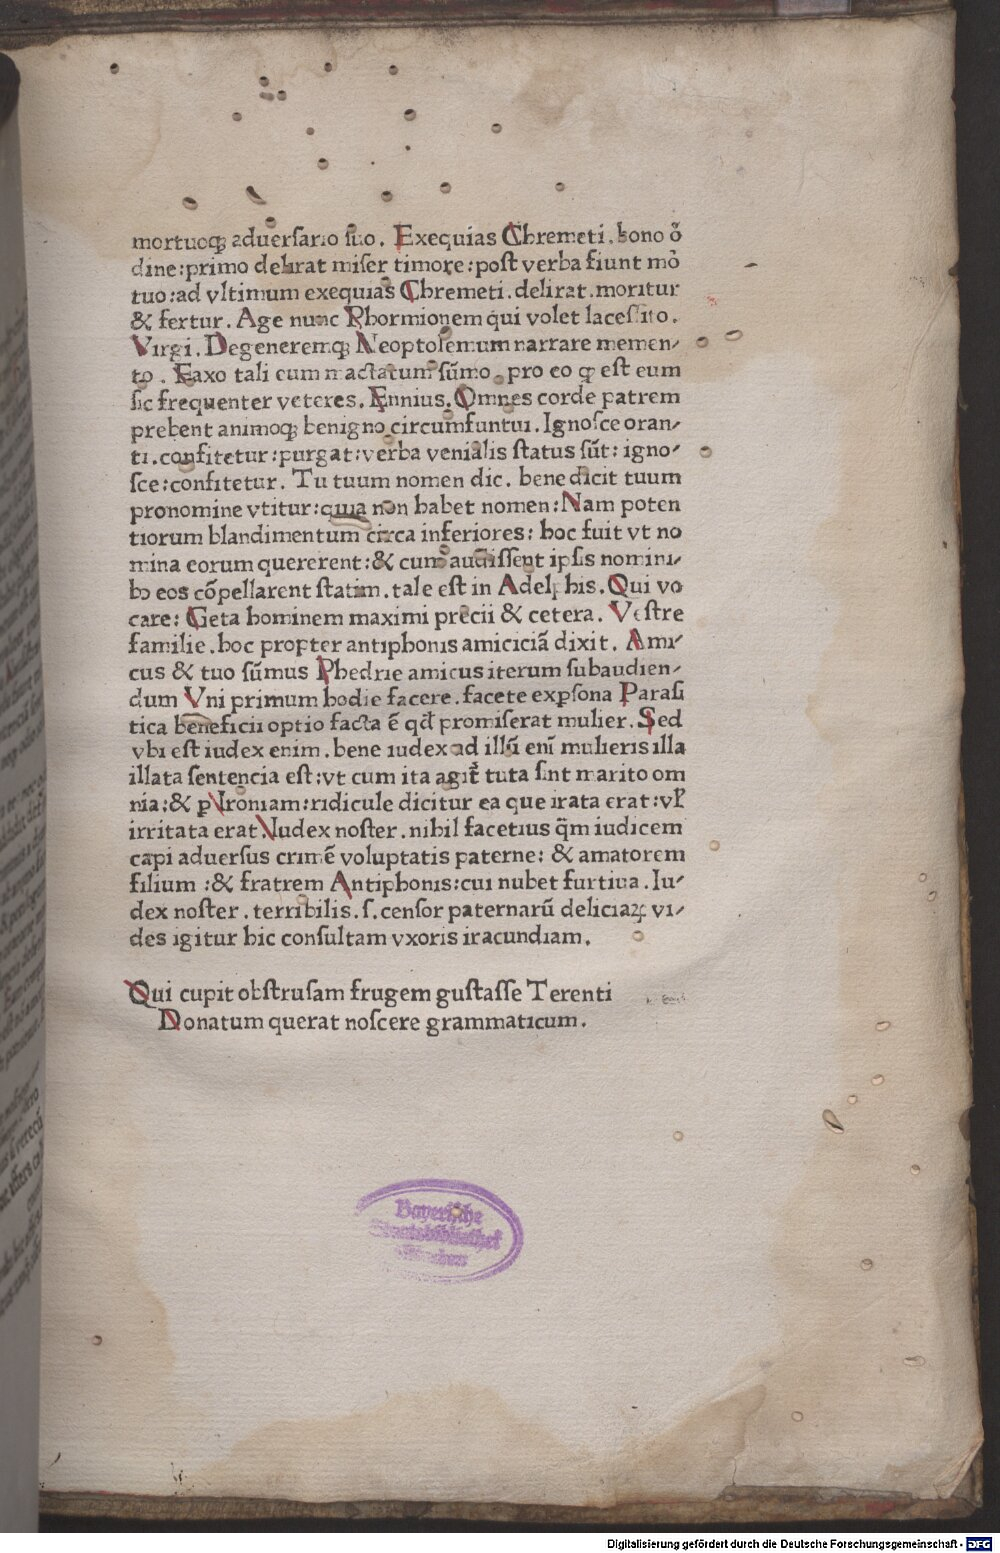 mortuoqꝫ aduersario suo. Exequias Chremeti. bono ỏ
dine: primo delirat miser timore: post verba fiunt mỏ
tuo: ad vltimum exequias Chremeti. delirat. moritur
& fertur. Age nunc Phormionem qui volet lacessito.
Virgi. Degeneremqꝫ Neoptolemum narrare memen⸗
to. Faxo tali eum mactatum sūmo pro eo qꝫ est eum
sic frequenter veteres. Ennius. Omnes corde patrem
prebent animoqꝫ benigno circumfuntui. Ignosce oran⸗
ti. confitetur: purgat: verba venialis status sūt: igno⸗
sce: confitetur. Tu tuum nomen dic. bene dicit tuum
pronomine vtitur: quia non habet nomen: Nam poten
tiorum blandimentum circa inferiores: hoc fuit vt no
mina eorum quererent: & cum audissent ipsis nomini⸗
bꝰ eos cōpellarent statim. tale est in Adelphis. Qui vo
care: Geta hominem maximi precii & cetera. Vestre
familie. hoc propter antiphonis amiciciā dixit. Ami⸗
cus & tuo sūmus Phedrie amicus iterum subaudien⸗
dum Vni primum hodie facere. facete exꝑsona Parasi
tica beneficii optio facta ē qd̄ promiserat mulier. Sed
vbi est iudex enim. bene iudex ad illū enī mulieris illa
illata sentencia est: vt cum ita agit᷑ tuta sint marito om
nia: & ꝑ Ironiam: ridicule dicitur ea que irata erat: vl̓
irritata erat Iudex noster. nihil facetius q̄m iudicem
capi aduersus crimē voluptatis paterne: & amatorem
filium: & fratrem Antiphonis: cui nubet furtiua. Iu⸗
dex noster. terribilis. s. censor paternarū deliciaꝝ vi⸗
des igitur hic consultam vxoris iracundiam.
Qui cupit obstrusam frugem gustasse Terenti
Donatum querat noscere grammaticum.
Bayerische
Staatsbibliothek
München
Digitalisierung gefördert durch die Deutsche Forschungsgemeinschaft - DFG